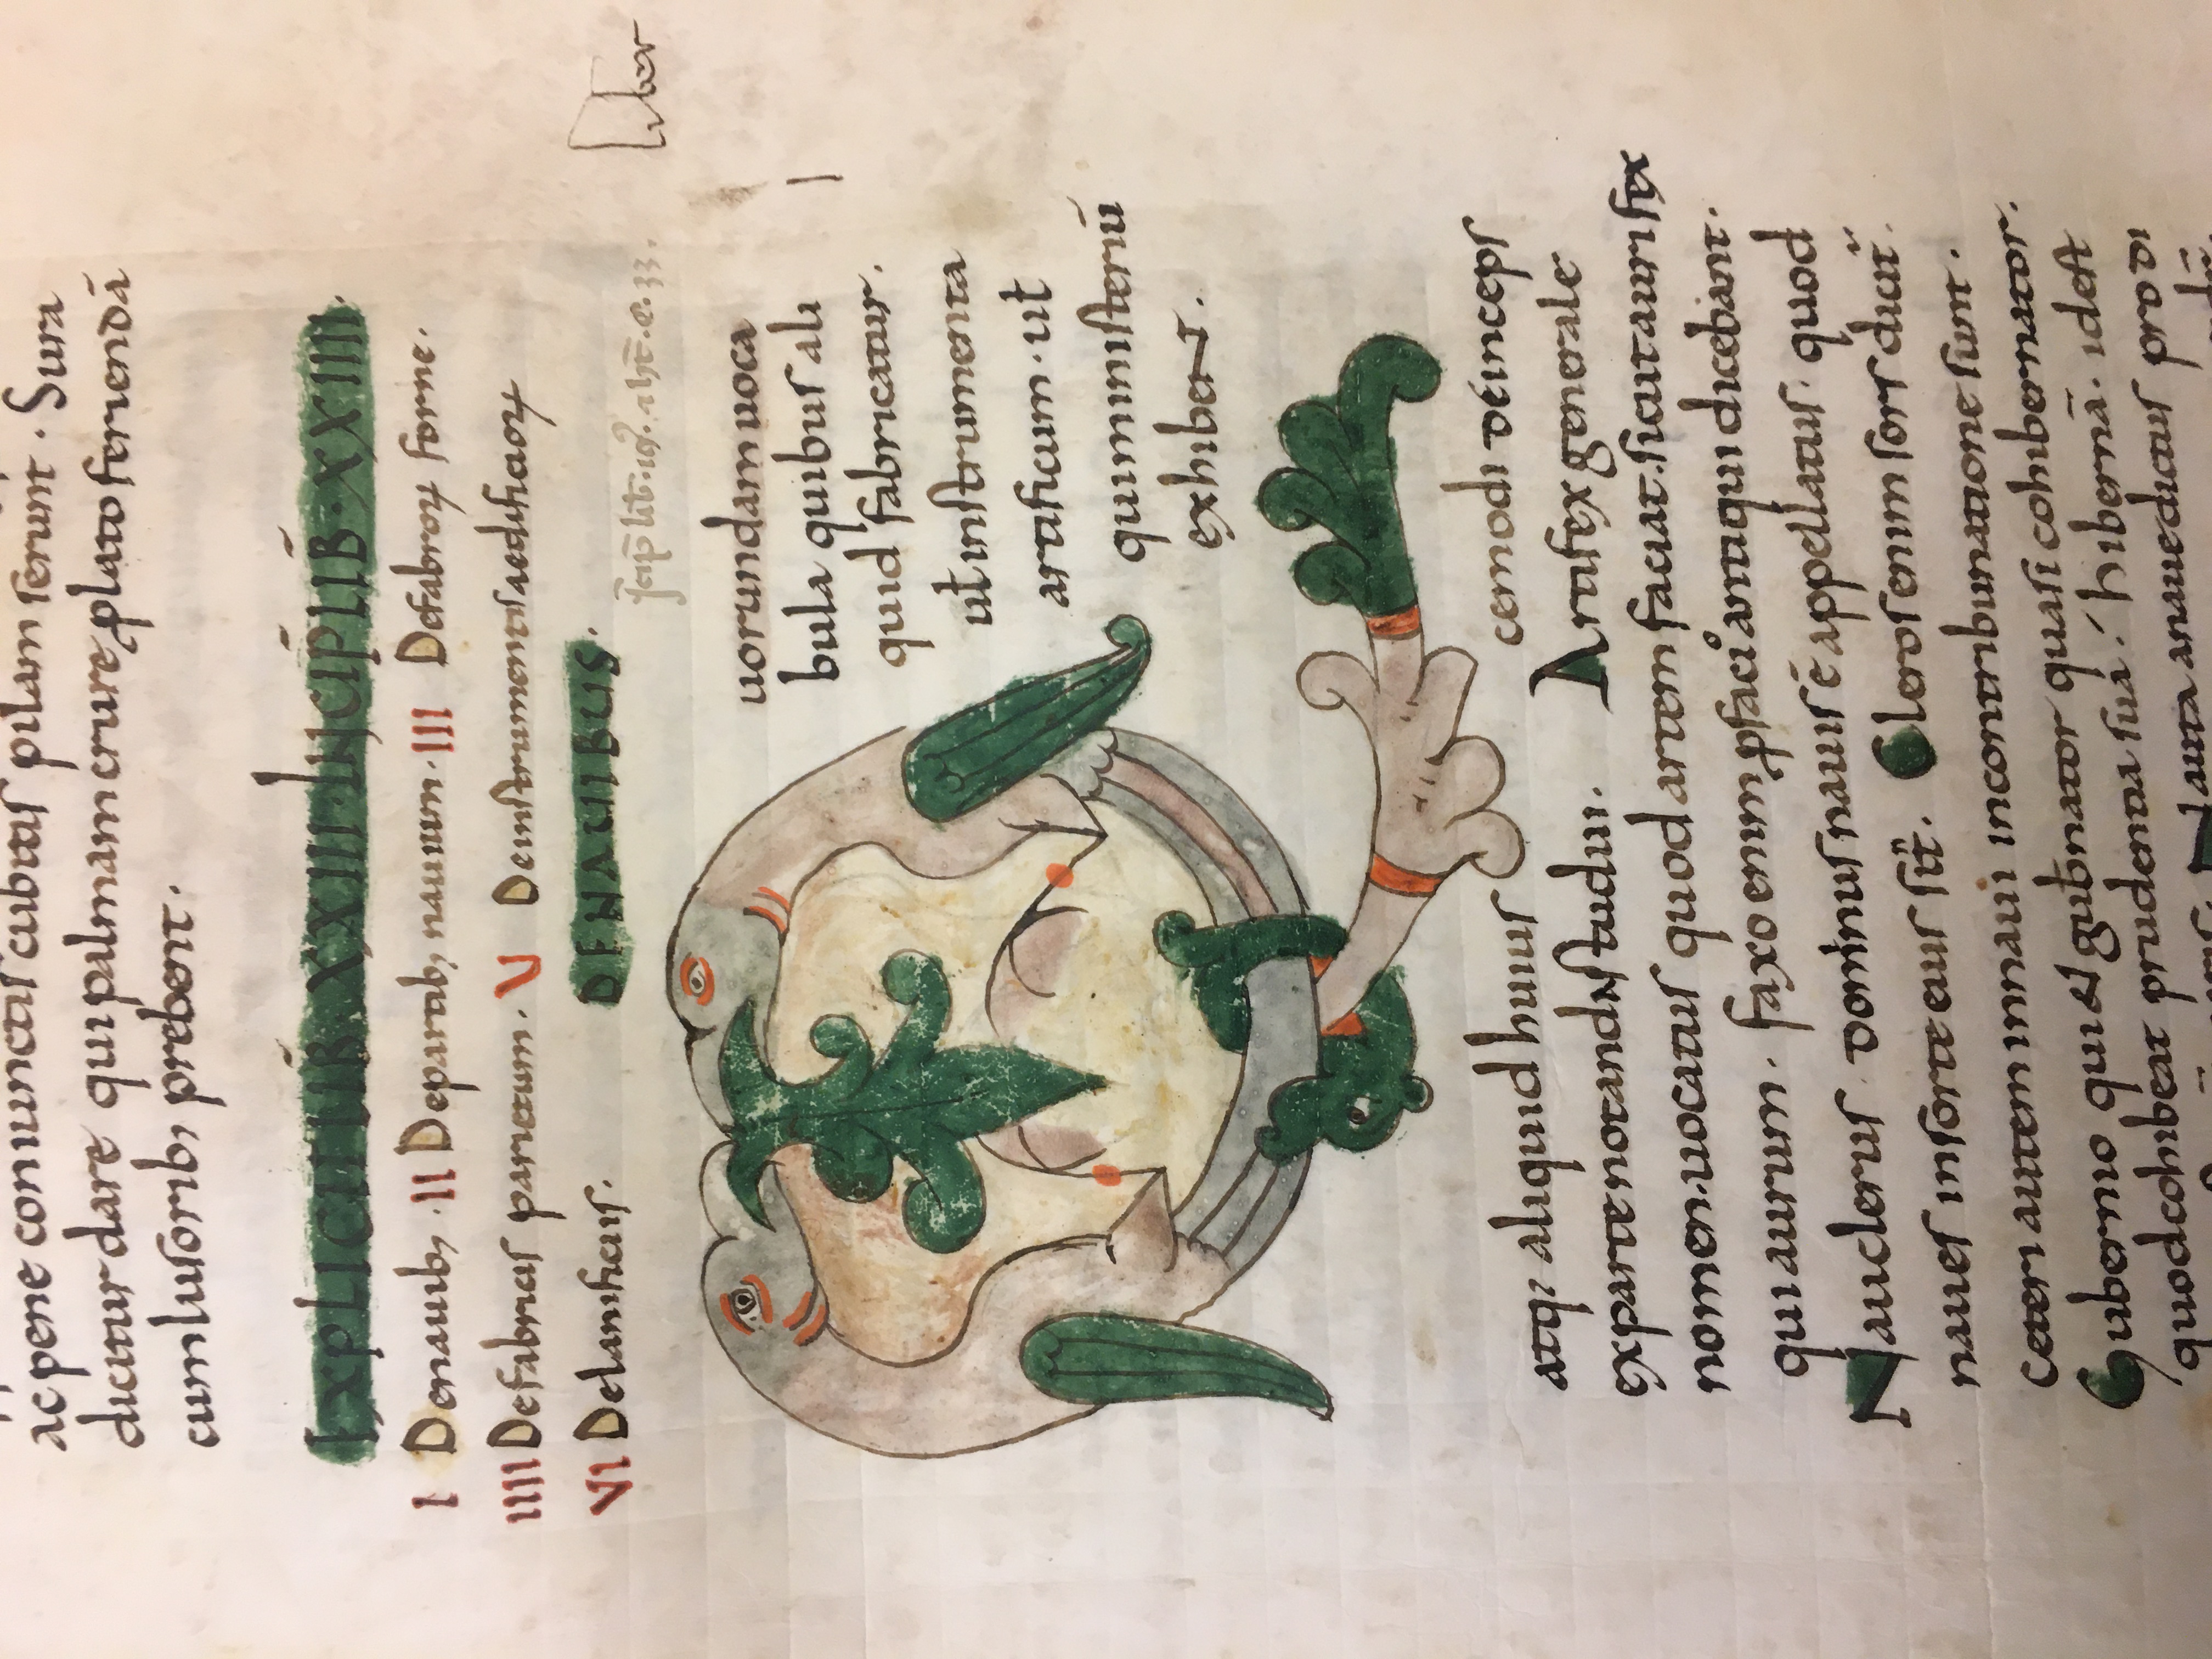 ac pene coniunctas cubitus pilam ferunt. Sura
dicitur dare qui palmam crure plato feriendā
cumlusorib; prebent.
EXPLICIT LIB̄ XVIII. INCIP̄ LIB̄ XVIIII.
I Denauib; II Departib; nauium. III Defabroꝝ forne.
IIII Defabricis parietum. V Deinstrumentisaedificioꝝ
VI Delanificiis. DE NAUIBUS.
Liber
uorundamuoca
bula quibus ali
quid fabricatur.
ut instrumenta
artificum. ut
quiministeriū
exhibent.
atq; aliquid huius cemodi deinceps
exparte notandū studui. Artifex generale
nomen. uocatus quod artem faciat. sicut aurifex
qui aurum. faxo enim ꝓfacio antiqui dicebant.
Nauclerus dominus nauis ē appellatus. quod
naues insorte eius sīt. Cleros enim sors dicit̄.
ceteri autem innaui incontribunatione sunt.
Gubernio qui et gubnator quasi cohibernator.
quod cohibeat prudentia suā hibernā. idest